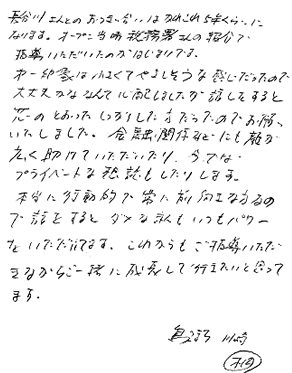 長谷川さんとのおつきあいはかれこれ5年くらいに
なります。オープン当時税務署さんの紹介で
指導いただいたのがはじまりです。
第一印象は小さくてやさしそうな感じだったので
大丈夫かななんて心配しましたが話しをすると
芯のとおったしっかりした方だったのでお願い
いたしました。金融関係などにも顔が
広く助けていただいたり、今では
プライベートな相談もしたりします。
本当に行動的で常に前向きな方なの
で話をするとダメな私もいつもパワー
をいただいてます。これからもご指導いただ
きながらご一緒に成長して行きたいと思って
ます。
川崎